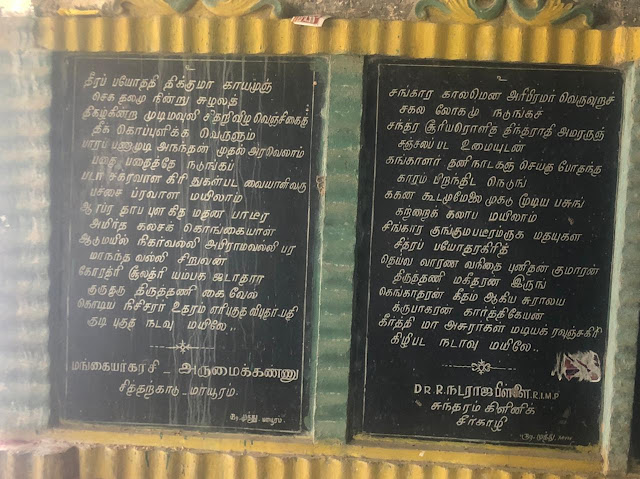 உ
தீரப் பயோததி திக்குமா காயமுஞ்
செக தலமு நின்று சுழலத்
திகழ்கின்ற முடிமவுலி சிதறிவிழ வெஞ்சிகைத்
தீக் கொப்புளிக்க வெருளும்
பாரப் பணாமுடி அநந்தன் முதல் அரவெலாம்
பதை பதைத்தே நடுங்கப்
படர் சக்ரவாள கிரி துகள்பட வையாளிவரு
பச்சை ப்ரவாள மயிலாம்
ஆரப்ர தாப புளகித மதன பாடீர
அமிர்த கலசக் கொங்கையாள்
ஆடுமயில் நிகர்வல்லி அபிராமவல்லி பர
மாநந்த வல்லி சிறுவன்
கோரத்ரி சூலத்ரி யம்பக ஜடாதார
குருதரு திருத்தணி கை வேல்
கொடிய நிசிசரர் உதரம் எரிபுகுத விபுதர் பதி
குடி புகுத நடவு மயிலே..
மங்கையர்கரசி - அருமைக்கண்ணு
சித்தற்காடு மாயூரம்.
உ
சங்கார காலமென அரிபிரமர் வெருவுறச்
சகல லோகமு நடுங்கச்
சந்த்ர சூரியரொளித் திந்த்ராதி அமரருஞ்
சஞ்சலப் பட உமையுடன்
கங்காளர் தனிநாடகஞ் செய்த போதந்த
காரம் பிறந்திட நெடுங்
ககன கூடமுமேலை முகடு மூடிய பசுங்
கற்றைக் கலாப மயிலாம்
சிங்கார குங்குமபடீரம்ருக மதயுகள
சித்ரப் பயோதரகிரித்
தெய்வ வாரண வநிதை புனிதன் குமாரன்
திருத்தணி மகீதரன் இருங்
கெங்காதரன் கீதம் ஆகிய சுராலய
க்ருபாகரன் கார்த்திகேயன்
கீர்த்தி மா அசுரர்கள் மடியக் ரவுஞ்சகிரி
கிழிபட நடாவு மயிலே..
DR. R.நடராஜபிள்ளை.R.I.M.P
சுந்தரம் கிளினிக்
சீர்காழி